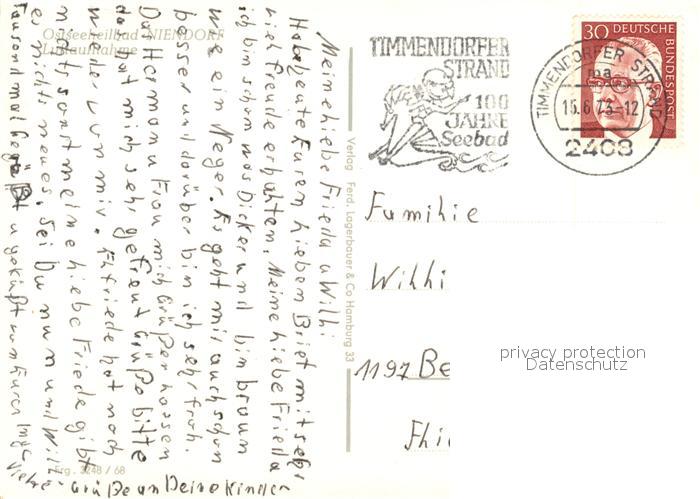 Ostseeheilbad NIENDORF
Luftaufnahme
Meine liebe Frieda u Willi
Habe heute Euren lieben Brief mit sehr
viel Freude erhalten. Meine liebe Frieda
ich bin schon was dicker und bin braun
wie ein Neger. Es geht mir auch schon
besser und darüber bin ich sehr froh.
Du Hermans Frau mich Grüßen lassen
da hat mich sehr gefreut Grüße bitte
wieder von mir. Elfriede hat noch
nichts sonst meine liebe Friede gibt
es nichts neues. Sei Du nun und Willi
Tausendmal gegrüßt u geküßt von Eurer
Viele Grüße an Deine Kinder
Frg. 3248 / 68
Verlag Ferd. Lagerbauer & Co Hamburg 33
TIMMENDORFER
STRAND
100
JAHRE
Seebad
TIMMENDORFER STRAND
ma
15.6.73-12
2408
30 DEUTSCHE
BUNDESPOST
Familie
Willi
1197 Be
privacy protection
Datenschutz